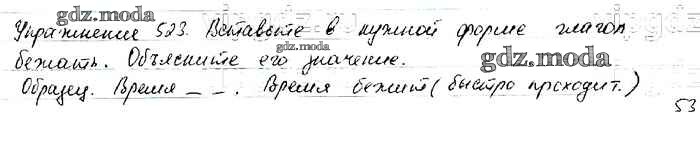 gdz.moda
Упражнение 523. Вставьте в нужной форме глагол
gdz.moda
бежать. Объясните его значение.
gdz.moda
Образец. Время _ _. Время бежит (быстро проходит.)
53